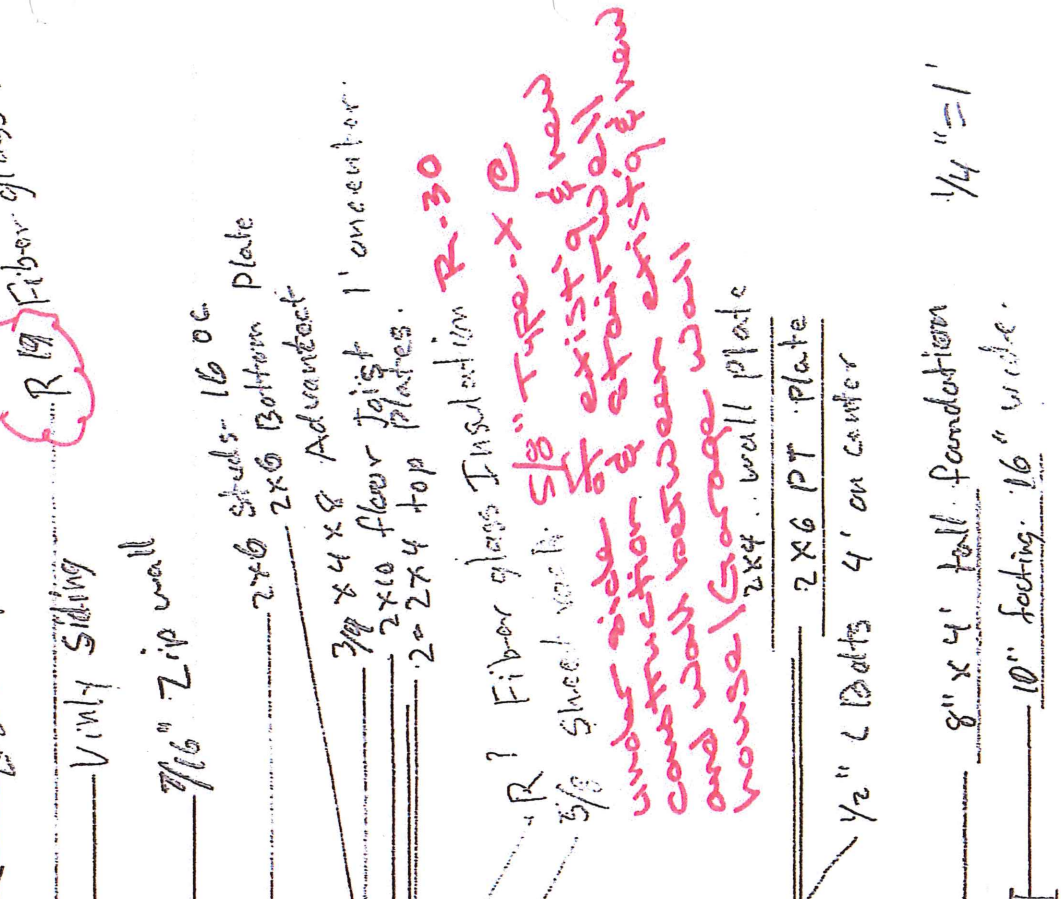 R 19 Fiber glass
Vinly Siding
7/16" Zip wall
2x6 studs- 16 oc
2x6 Bottom plate
3/4 x 4 x 8 Advantect
2x10 floor Joist 1' on center.
2- 2x4 top plates.
R ? Fiber glass Insulation R-30
5/8 Sheet rock. 5/8" Type-X @
under side of exist'g & new
construction & stair wall
and wall between exist'g & new
house/Garage wall
2x4 wall plate
2x6 PT plate
1/2" L Bolts 4' on center
8" x 4' tall foundation
10" footing. 16" wide.
1/4"=1'